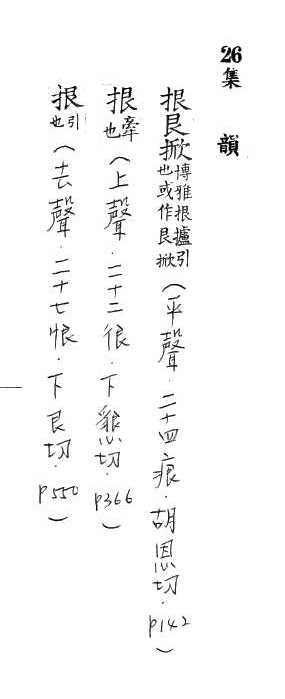 26集　韻
拫艮掀博雅拫攎引也或作艮掀（平聲．二十四痕．胡恩切．p142）
拫牽也（上聲．二十二很．下懇切．p366）
拫引也（去聲．二十七恨．下艮切．p550）